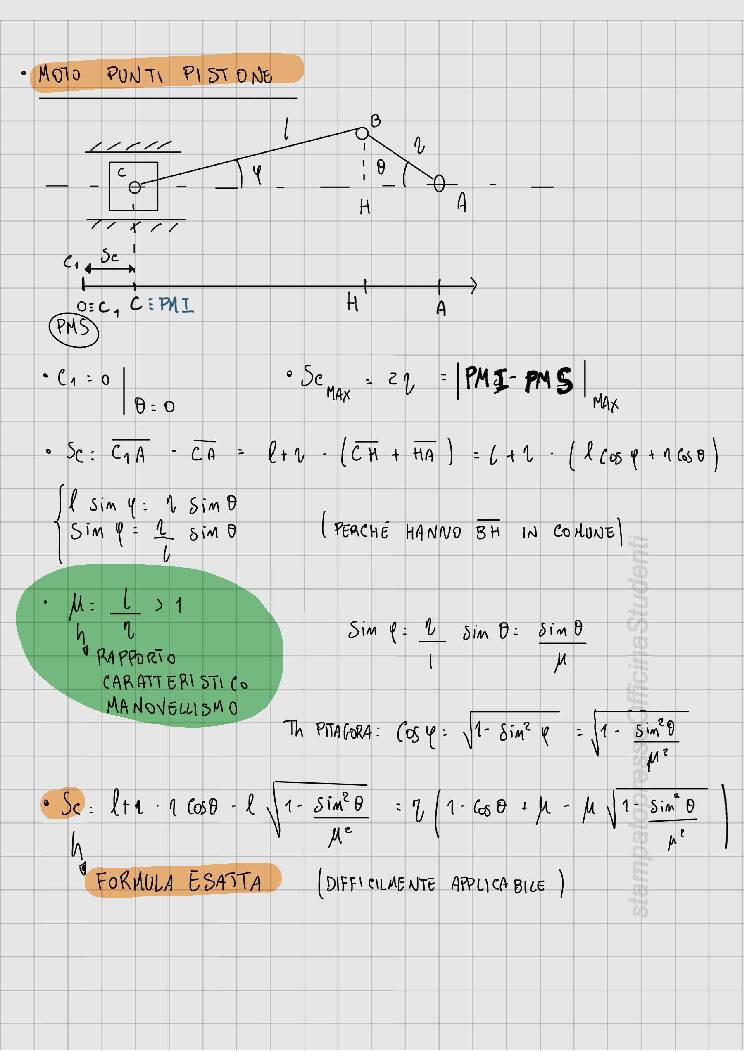 • MOTO PUNTI PISTONE
l
B
r
C
φ
θ
H
A
C₁
Sc
O≡C₁ C≡PMI
H
A
PMS
• C₁ = 0 | θ = 0
• Sc MAX = 2r = |PMI - PMS| MAX
• Sc = C₁A - CA = l+r - (CH + HA) = l+r - (l cos φ + r cos θ)
{ l sin φ = r sin θ
sin φ = r/l sin θ
(PERCHÉ HANNO BH IN COMUNE)
• μ = l/r > 1
RAPPORTO
CARATTERISTICO
MANOVELLISMO
sin φ = r/l sin θ = sin θ/μ
Th PITAGORA: cos φ = √(1 - sin² φ) = √(1 - sin²θ/μ²)
• Sc = l+r - r cos θ - l √(1 - sin²θ/μ²) = r (1 - cos θ + μ - μ √(1 - sin²θ/μ²))
FORMULA ESATTA (DIFFICILMENTE APPLICABILE)
stampatopressOfficinaStudenti